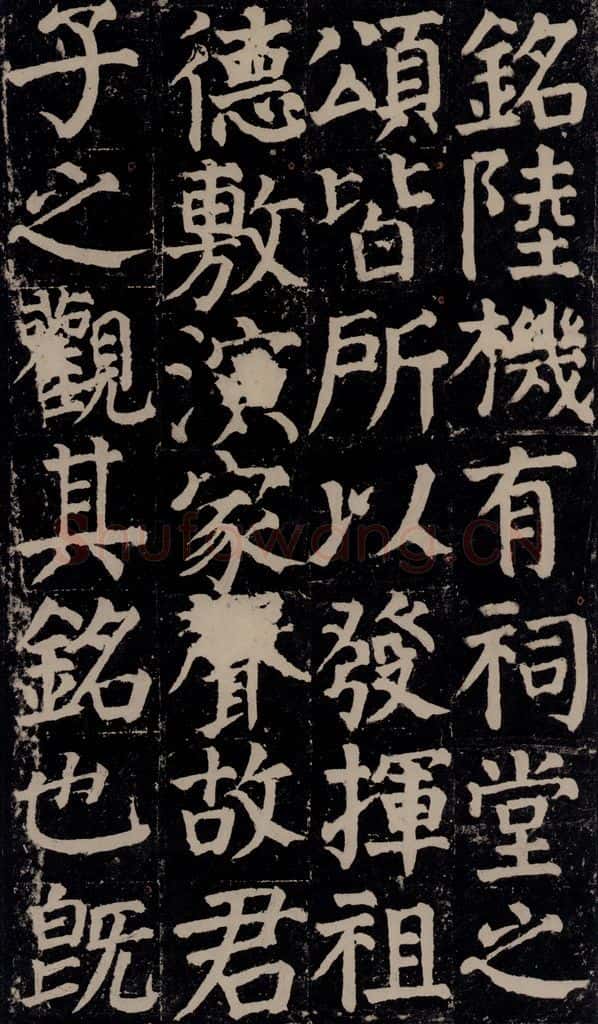 銘陸機有祠堂之
頌皆所以發揮祖
德敷演家聲故君
子之觀其銘也既
shufawang.CN